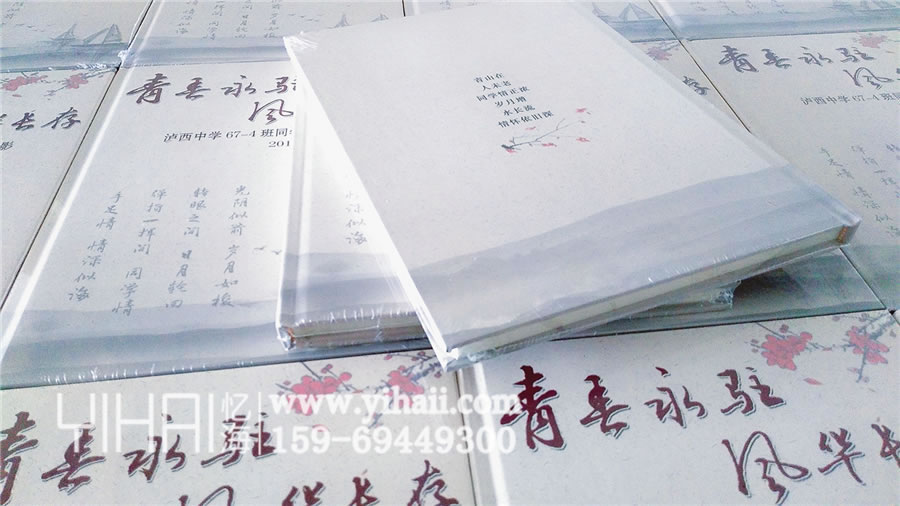 青春永驻
风
泸西中学67-4班同
201
光阴似箭 岁月如梭
转眼之间 日月轮回
伴指一挥间 同学情
手足情 情深似海
深似海
青山在
人未老
同学情正浓
岁月增
水长流
情怀依旧深
青春永驻
风
华长存
影
春永驻
风
YIHAI 忆海
www.yihaii.com
159-69449300
青春永驻
风华长存
青春永驻
风华长